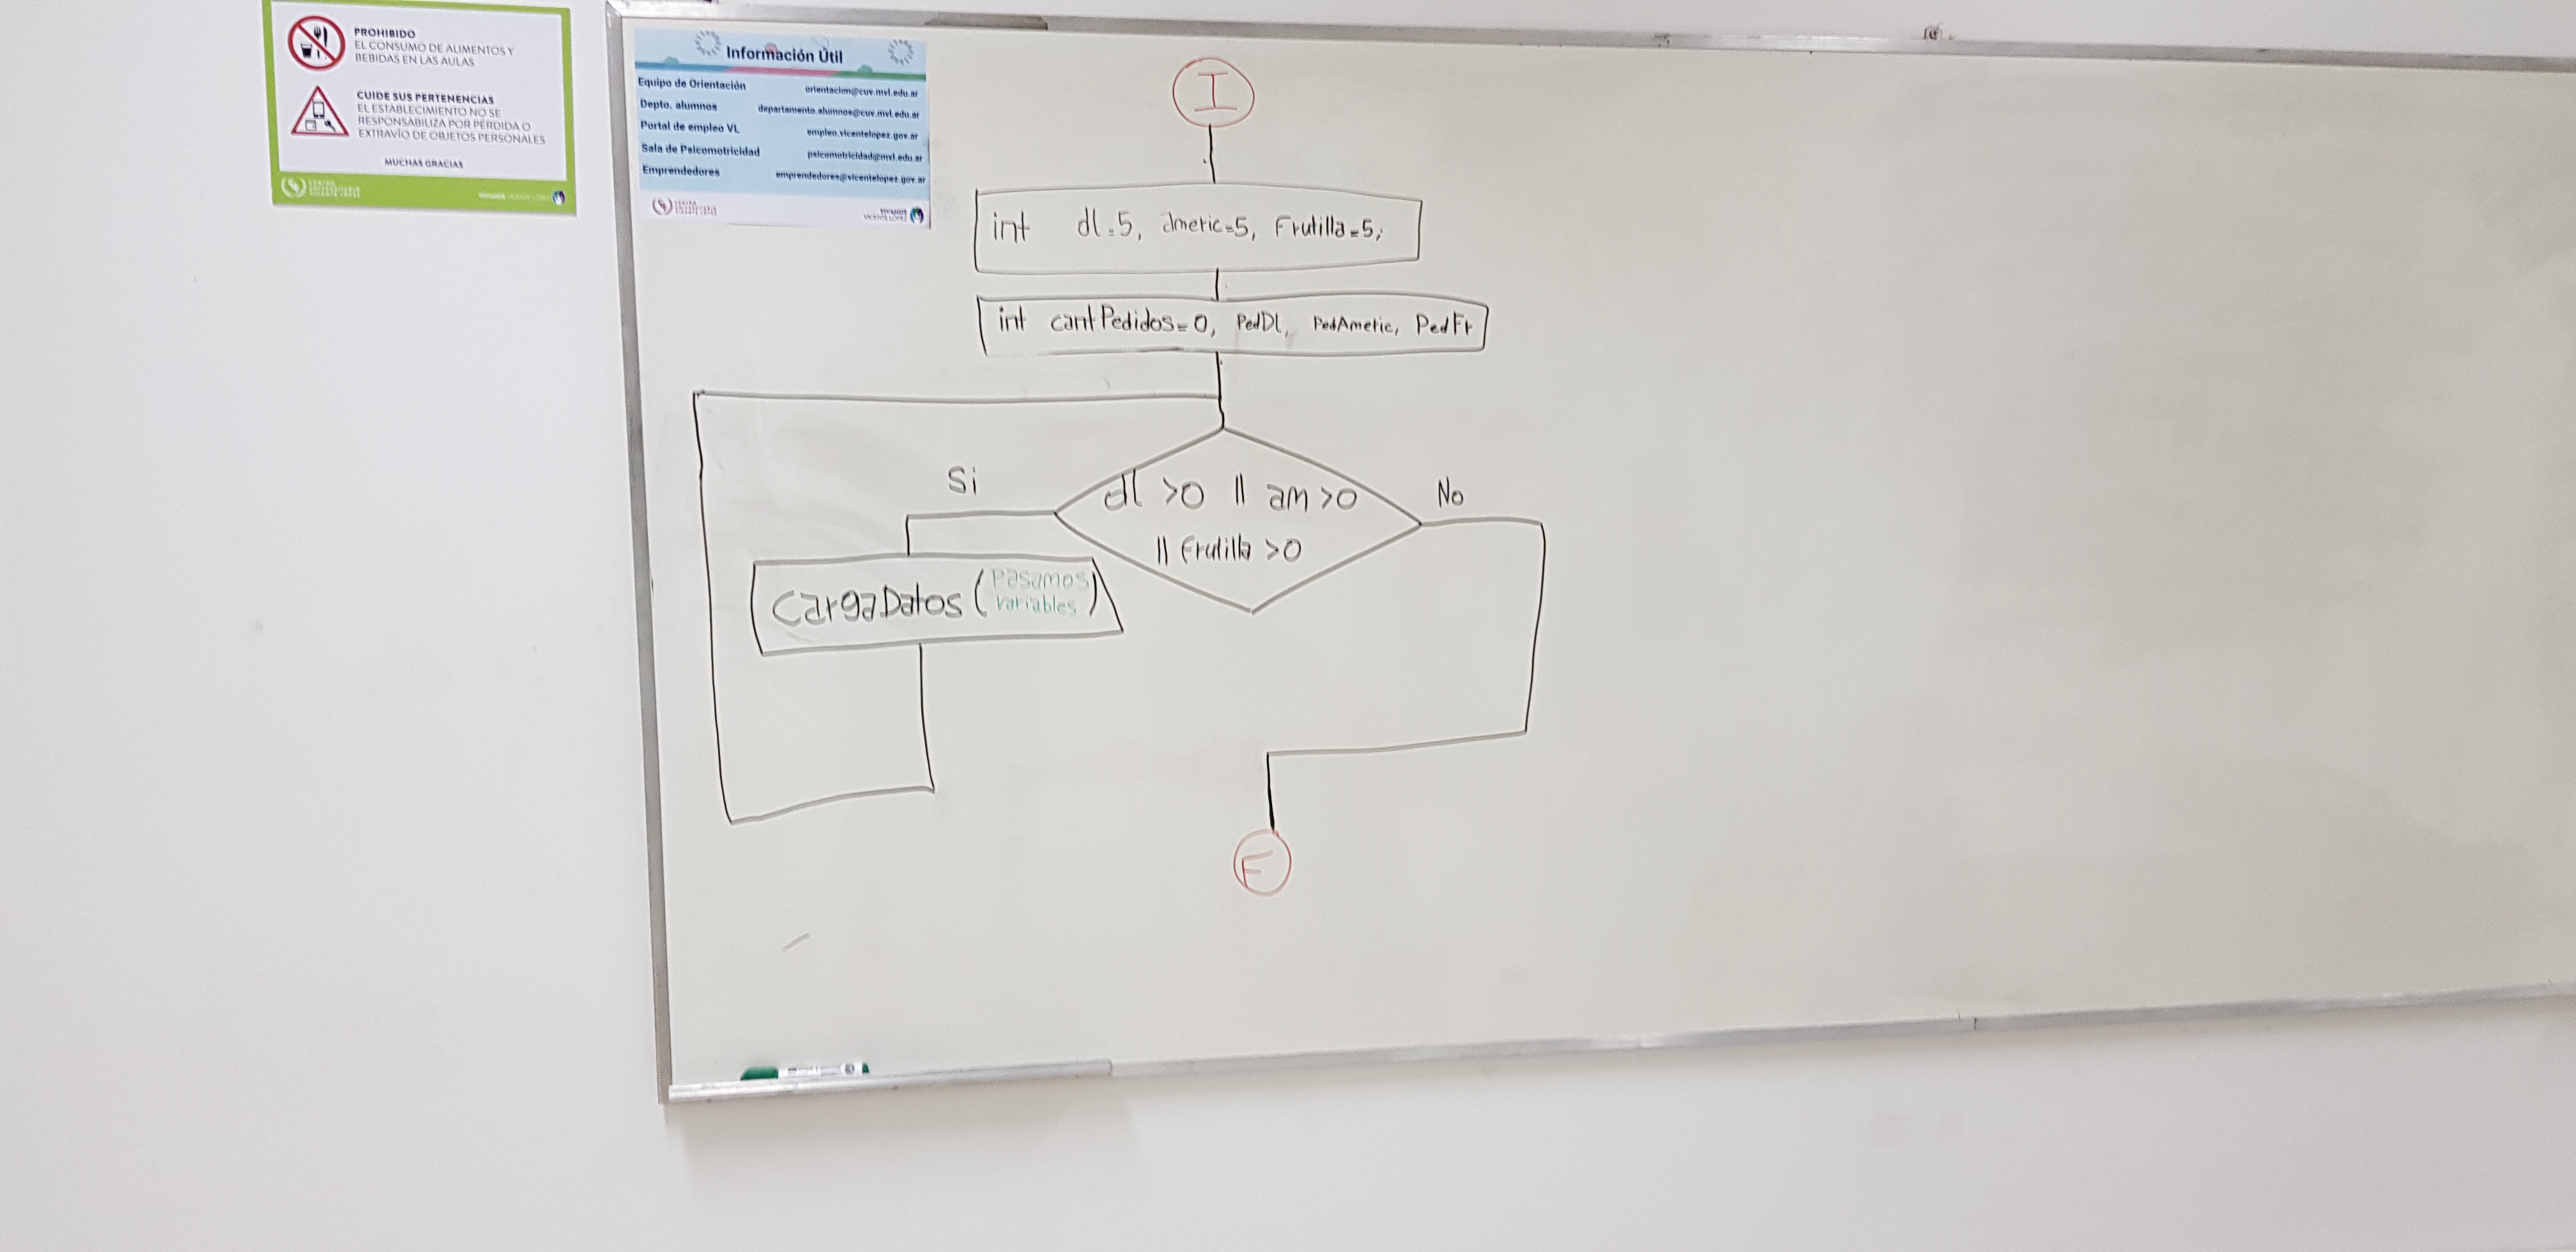 PROHIBIDO
EL CONSUMO DE ALIMENTOS Y
BEBIDAS EN LAS AULAS
CUIDE SUS PERTENENCIAS
EL ESTABLECIMIENTO NO SE
RESPONSABILIZA POR PÉRDIDA O
EXTRAVÍO DE OBJETOS PERSONALES
MUCHAS GRACIAS
Información Útil
Equipo de Orientación orientacion@cuv.mvl.edu.ar
Depto. alumnos departamento.alumnos@cuv.mvl.edu.ar
Portal de empleo VL empleo.vicentelopez.gov.ar
Sala de Psicomotricidad psicomotricidad@mvl.edu.ar
Emprendedores emprendedores@vicentelopez.gov.ar
VIVAMOS
VICENTE LÓPEZ
I
int dl=5, americ=5, Frutilla=5;
int cantPedidos=0, PedDl, PedAmeric, PedFr
Si
dl >0 || am >0
No
|| Frutilla >0
CargaDatos (Pasamos
variables)
F